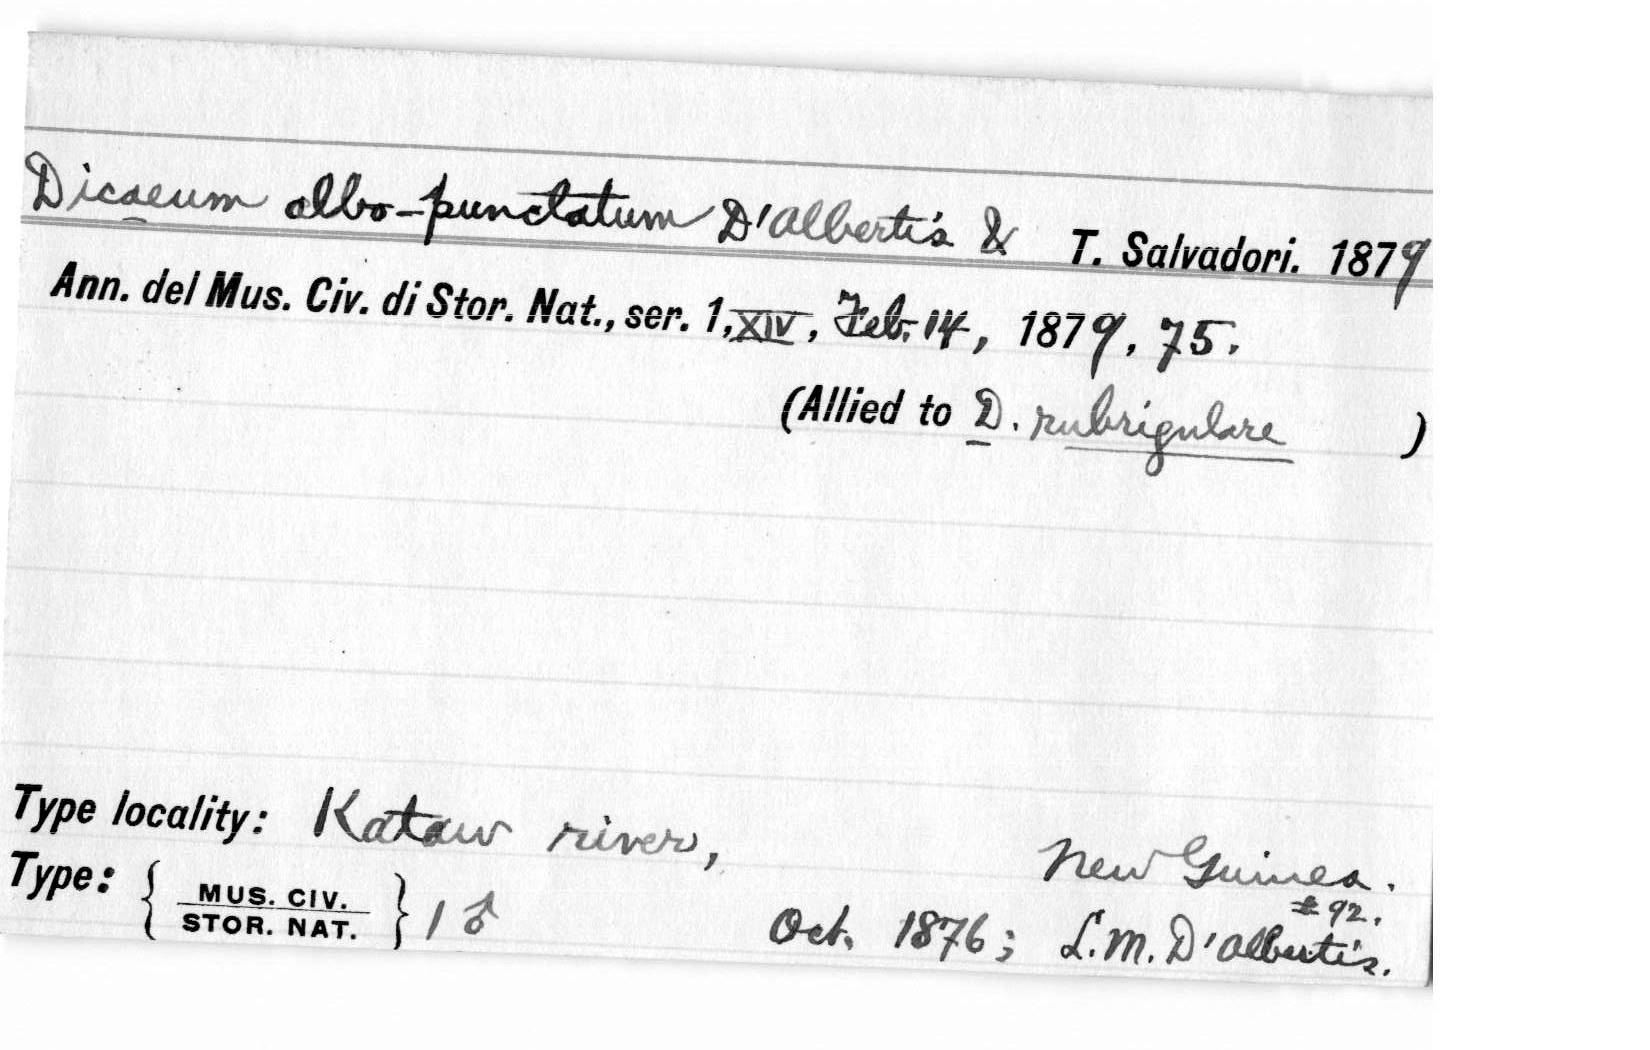 Dicaeum albo-punctatum D'Albertis & T. Salvadori. 1879
Ann. del Mus. Civ. di Stor. Nat., ser. 1, XIV, Feb. 14, 1879, 75.
(Allied to D. rubrigulare )
Type locality: Kataw river, New Guinea.
# 92.
Type: { MUS. CIV. STOR. NAT. } 1 ♂ Oct. 1876; L.M. D'Albertis.